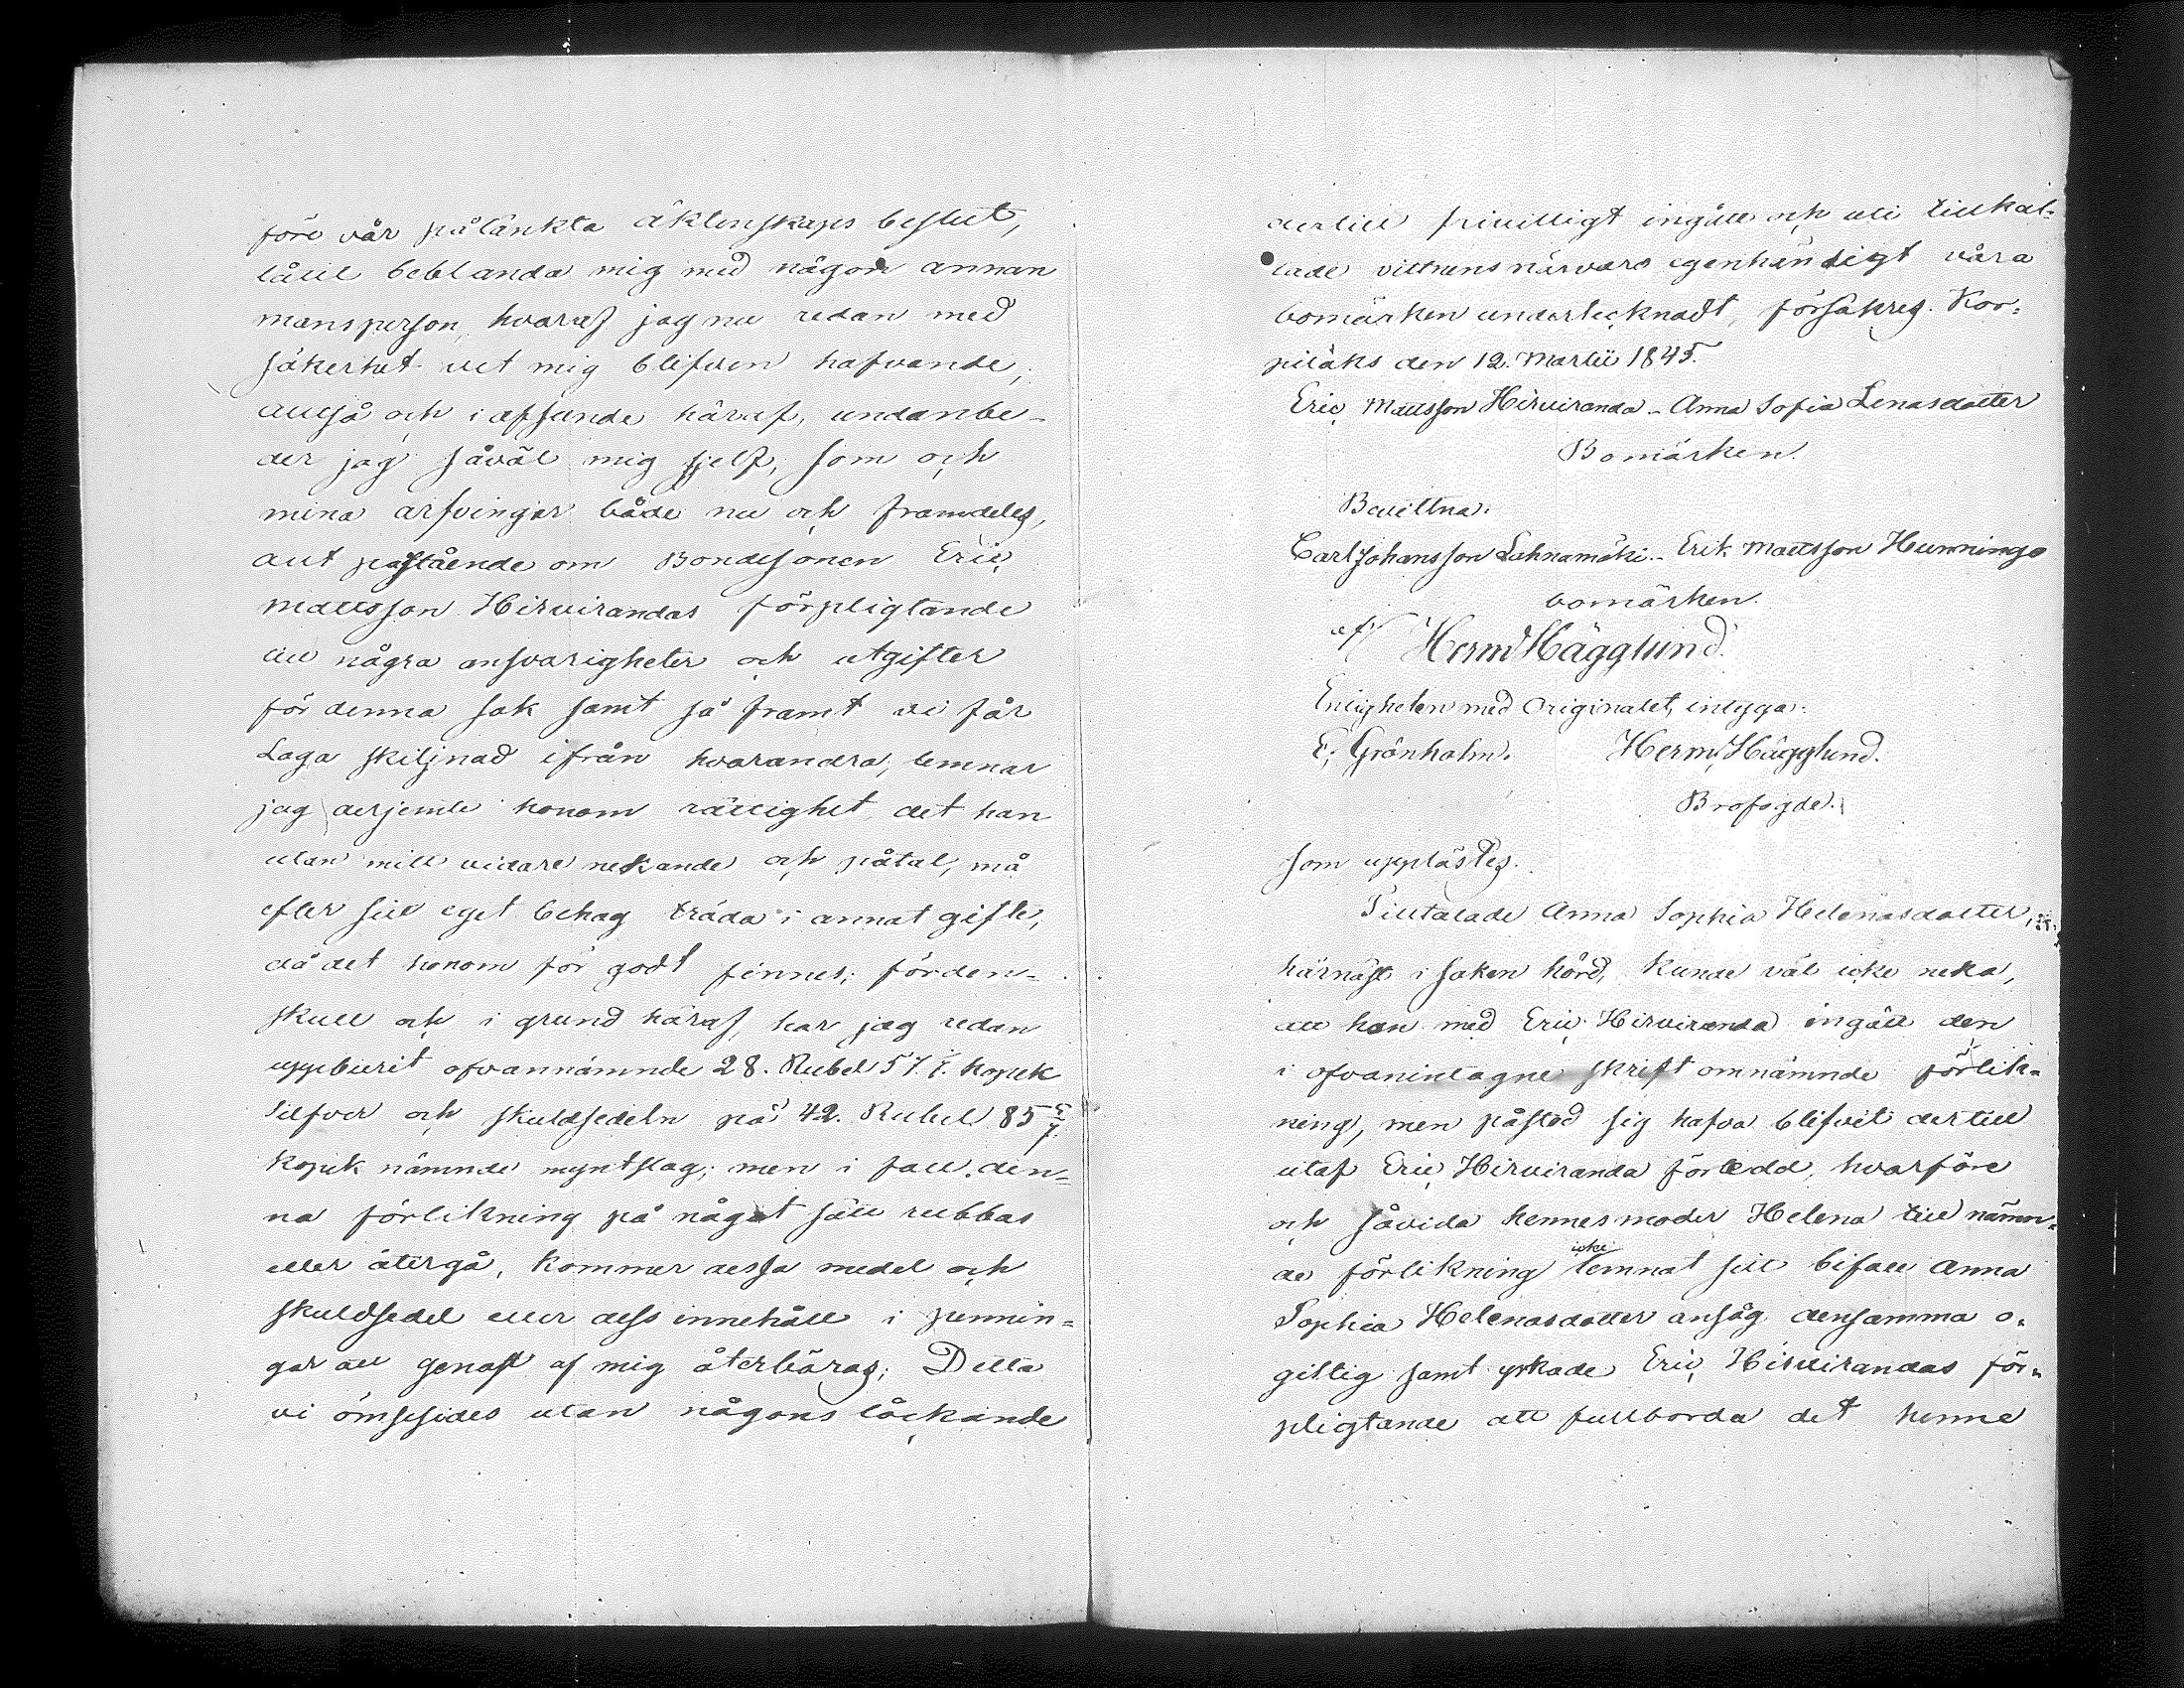 före vår påtänkta äktenskaps beslut,
låtit beblanda mig med någon annan
mansperson, hvaraf jag nu redan med
säkerhet vet mig blifven hafvande,
alltså och i afseende häraf, undanbe-
der jag såväl mig sjelf, som och
mina arfvingar både nu och framdeles,
allt påstående om Bondesonen Eric
Mattsson Hirvirandas förpligtande
till några ansvarigheter och utgifter
för denna sak samt så framt vi får
Laga skiljnad ifrån hvarandra, lemnar
jag derjemte honom rättighet det han
utan mitt vidare nekande och påtal, må
efter sitt eget behag träda i annat gifte,
då det honom för godt finnes; förden-
skull och i grund häraf har jag redan
uppburit ofvannämnde 28. Rubel 57 1/7. kopek
silfver och skuldsedeln på 42. Rubel 85 5/7.
kopek nämnde myntslag; men i fall den-
na förlikning på något sätt rubbas
eller återgå, kommer dessa medel och
skuldsedel eller dess innehåll i pennin-
gar att genast af mig återbäras; Detta
vi ömsesides utan någons låckande
dertill frivilligt ingått och uti tillkal-
lade vittnens närvaro egenhändigt våra
bomärken undertecknadt, försäkras. Kor-
piläks den 12. Martii 1845.
Eric Mattsson Hirviranda - Anna Sofia Lenasdotter
Bomärken.
Bevittna.
Carl Johansson Lahnamäki - Erik Mattsson Hunninge
bomärken.
af/ Herm Hägglund.
Enligheten med Originalet, intyga.
E. Grönholm. Herm. Hägglund.
Brofogde.
Som upplästes.
Tilltalade Anna Sophia Helenasdotter,
härnäst i saken hörd, kunde väl icke neka,
att hon med Eric Hirviranda ingått den
i ofvanintagne skrift omnämnde förlik-
ning, men påstod sig hafva blifvit dertill
utaf Eric Hirviranda förledd, hvarföre
och såvida hennes moder Helena till nämn-
de förlikning icke lemnat sitt bifall Anna
Sophia Helenasdotter ansåg densamma o-
giltig samt yrkade Eric Hirvirandas för-
pligtande att fullborda det henne